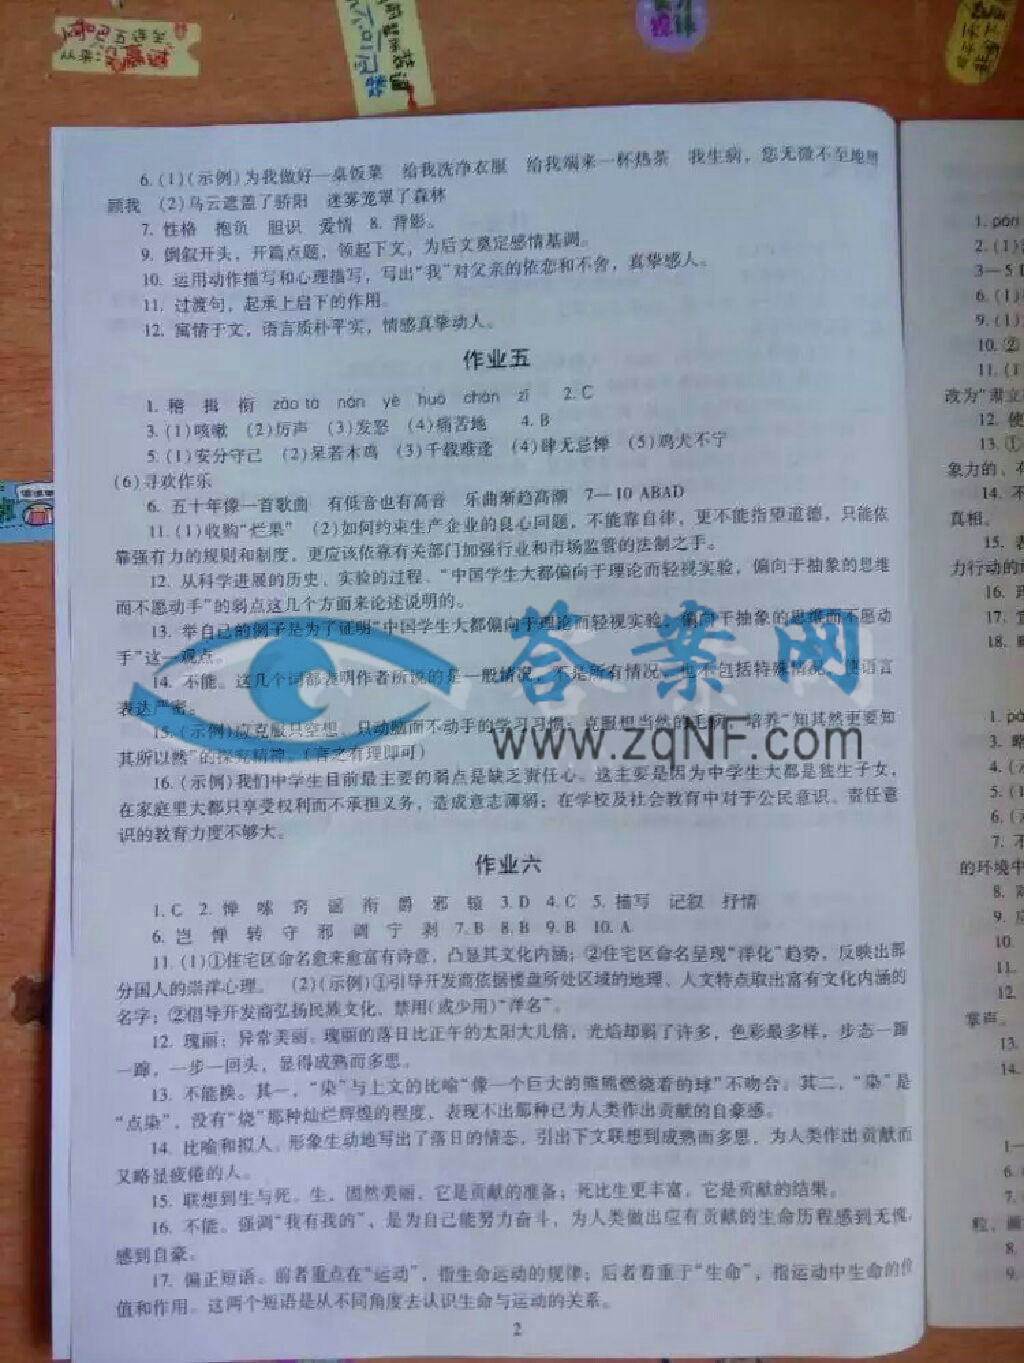 6. (1)(示例)为我做好一桌饭菜 给我洗净衣服 给我端来一杯热茶 我生病，您无微不至地照
顾我 (2)乌云遮盖了骄阳 迷雾笼罩了森林
7. 性格 抱负 胆识 爱情 8. 背影。
9. 倒叙开头，开篇点题，领起下文，为后文奠定感情基调。
10. 运用动作描写和心理描写，写出“我”对父亲的依恋和不舍，真挚感人。
11. 过渡句，起承上启下的作用。
12. 寓情于文，语言质朴平实，情感真挚动人。
作业五
1. 稽 揖 衔 zāo tà nǎn yè huò chán zī 2. C
3. (1)咳嗽 (2)厉声 (3)发怒 (4)痛苦地 4. B
5. (1)安分守己 (2)呆若木鸡 (3)千载难逢 (4)肆无忌惮 (5)鸡犬不宁
(6)寻欢作乐
6. 五十年像一首歌曲 有低音也有高音 乐曲渐趋高潮 7—10 ABAD
11. (1)收购“烂果” (2)如何约束生产企业的良心问题，不能靠自律，更不能指望道德，只能依
靠强有力的规则和制度，更应该依靠有关部门加强行业和市场监管的法制之手。
12. 从科学进展的历史、实验的过程、“中国学生大都偏向于理论而轻视实验，偏向于抽象的思维
而不愿动手”的弱点这几个方面来论述说明的。
13. 举自己的例子是为了证明“中国学生大都偏向于理论而轻视实验，偏向于抽象的思维而不愿动
手”这一观点。
14. 不能。这几个词都表明作者所说的是一般情况，不是所有情况，也不包括特殊情况，使语言
表达严密。
15. (示例)应克服只空想、只动脑而不动手的学习习惯；克服想当然的毛病，培养“知其然更要知
其所以然”的探究精神。(言之有理即可)
16. (示例)我们中学生目前最主要的弱点是缺乏责任心。这主要是因为中学生大都是独生子女，
在家庭里大都只享受权利而不承担义务，造成意志薄弱；在学校及社会教育中对于公民意识、责任意
识的教育力度不够大。
作业六
1. C 2. 惮 嗦 窍 谣 衔 爵 邪 辕 3. D 4. C 5. 描写 记叙 抒情
6. 岂 惮 转 守 邪 调 宁 剥 7. B 8. B 9. B 10. A
11. (1)①住宅区命名愈来愈富有诗意，凸显其文化内涵；②住宅区命名呈现“洋化”趋势，反映出部
分国人的崇洋心理。 (2)(示例)①引导开发商依据楼盘所处区域的地理、人文特点取出富有文化内涵的
名字；②倡导开发商弘扬民族文化，禁用(或少用)“洋名”。
12. 瑰丽：异常美丽。瑰丽的落日比正午的太阳大几倍，光焰却弱了许多，色彩最多样，步态一蹿
一蹿，一步一回头，显得成熟而多思。
13. 不能换。其一，“染”与上文的比喻“像一个巨大的熊熊燃烧着的球”不吻合；其二，“染”是
“点染”，没有“烧”那种灿烂辉煌的程度，表现不出那种已为人类作出贡献的自豪感。
14. 比喻和拟人。形象生动地写出了落日的情态，引出下文联想到成熟而多思，为人类作出贡献而
又略显疲倦的人。
15. 联想到生与死。生，固然美丽，它是贡献的准备；死比生更丰富，它是贡献的结果。
16. 不能。强调“我有我的”，是为自己能努力奋斗，为人类做出应有贡献的生命历程感到无愧，
感到自豪。
17. 偏正短语。前者重点在“运动”，指生命运动的规律；后者着重于“生命”，指运动中生命的价
值和作用。这两个短语是从不同角度去认识生命与运动的关系。
2
答案网
www.zqNF.com
1. pán
2. (1)
3—5
6. (1)
9. (1)
10. ②
11. (1
改为“肃立
12. 使
13. ①
象力的、
14. 不
真相。
15. 表
力行动的
16.
17. 宜
18.
3. 略
4. (
5. (1
6. (
7. 不
的环境中
8.
9. 应
10.
11.
12.
掌声。
13.
14.
6.
7.
8.
9.